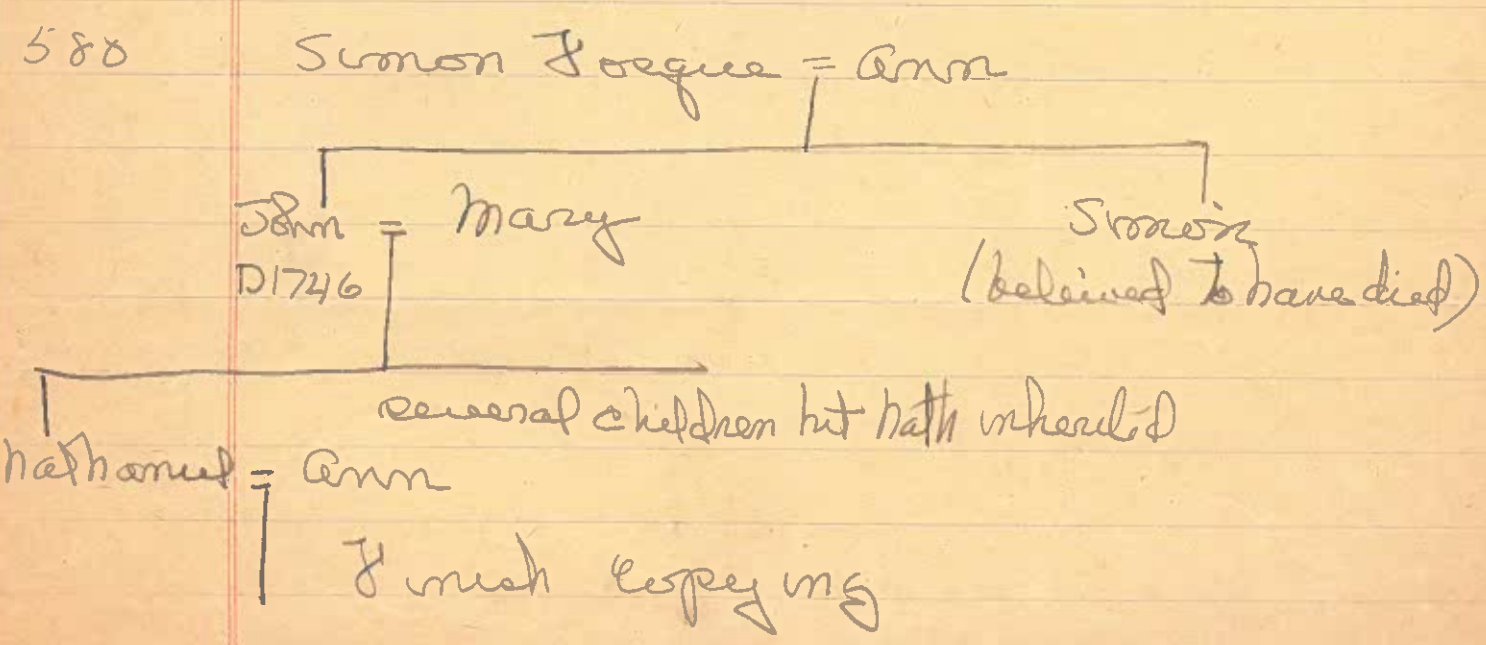 580 Simon Foeque = Ann
John = Mary Simon
D1746 (beleived to have died)
several children but Nath inherited
Nathaniel = Ann
Finish copying